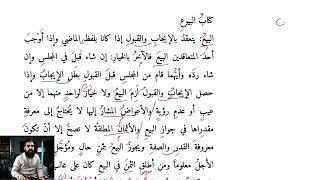 كتابُ البيوعِ
البيعُ: ينعقدُ بالإيجابِ والقبولِ إذا كانا بلفظِ الماضي وإذا أَوْجَبَ
أحدُ المتعاقدين البيعَ فالآخرُ بالخيارِ: إن شاءَ قبلَ في المجلسِ وإن
شاءَ ردَّه وأيُّهما قامَ من المجلسِ قبلَ القبولِ بطلَ الإيجابُ وإذا
حصل الإيجابُ والقبولُ لَزِمَ البيعُ ولا خيارَ لواحدٍ منهما إلا من
عيبٍ أو عدمِ رؤيةٍ والأعواضُ المشارُ إليها لا يُحتاجُ إلى معرفةِ
مقدارِها في جوازِ البيعِ والأثمانُ المطلقةُ لا تصحُّ إلا أن تكونَ
معروفةَ القدرِ والصفةِ ويجوزُ البيعُ بثمنٍ حالٍّ ومؤجَّلٍ
الأجلُ معلوماً ومن أطلقَ الثمنَ في البيعِ كان على غالبِ